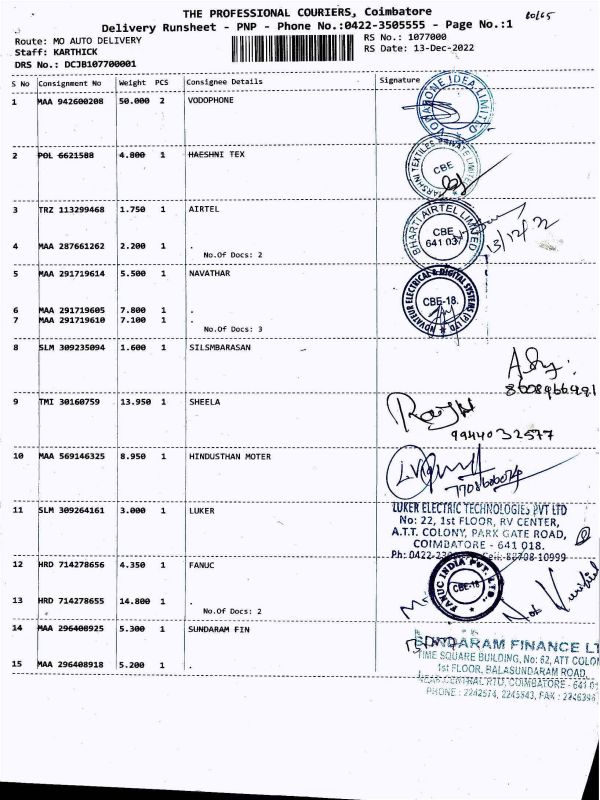 THE PROFESSIONAL COURIERS, Coimbatore
Delivery Runsheet - PNP - Phone No.:0422-3505555 - Page No.:1
Route: MO AUTO DELIVERY
RS No.: 1077000
Staff: KARTHICK
RS Date: 13-Dec-2022
DRS No.: DCJB107700001
S No Consignment No Weight PCS Consignee Details Signature
1 MAA 942600208 50.000 2 VODOPHONE
VODAFONE IDEA LIMITED
2 POL 6621588 4.800 1 HAESHNI TEX
TEXTILES PRIVATE LIMITED
CBE
3 TRZ 113299468 1.750 1 AIRTEL
BHARTI AIRTEL LIMITED
CBE
641 037
13/12/22
4 MAA 287661262 2.200 1 .
No.Of Docs: 2
5 MAA 291719614 5.500 1 NAVATHAR
NOVATEUR ELECTRICAL & DIGITAL SYSTEMS (P) LTD
CBE-18.
6 MAA 291719605 7.800 1 .
7 MAA 291719610 7.100 1 .
No.Of Docs: 3
8 SLM 309235094 1.600 1 SILSMBARASAN
9 TMI 30160759 13.950 1 SHEELA
9944032577
10 MAA 569146325 8.950 1 HINDUSTHAN MOTER
11 SLM 309264161 3.000 1 LUKER
LUKER ELECTRIC TECHNOLOGIES PVT LTD
No: 22, 1st FLOOR, RV CENTER,
A.T.T. COLONY, PARK GATE ROAD,
COIMBATORE - 641 018.
Ph: 0422- Cell: 88708 10999
12 HRD 714278656 4.350 1 FANUC
FANUC INDIA PVT. LTD.
CBE-18
Not Verified
13 HRD 714278655 14.800 1 .
No.Of Docs: 2
14 MAA 296408925 5.300 1 SUNDARAM FIN
SUNDARAM FINANCE LT
TIME SQUARE BUILDING, No: 62, ATT COLON
1st FLOOR, BALASUNDARAM ROAD,
NEAR CENTRAL RTO, COIMBATORE - 641 01
PHONE : 2242574, 2245643, FAX : 2246396
15 MAA 296408918 5.200 1 .